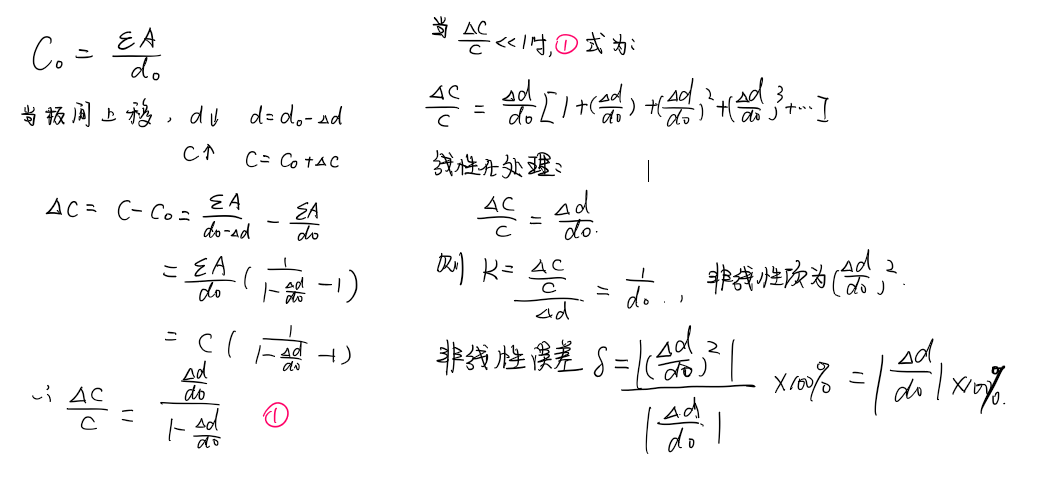 C₀ = εA/d₀
当极间上移, d↓ d=d₀-Δd
C↑ C=C₀+ΔC
ΔC = C-C₀ = εA/(d₀-Δd) - εA/d₀
= εA/d₀ (1/(1-Δd/d₀) -1)
= C (1/(1-Δd/d₀) -1)
∴ ΔC/C = (Δd/d₀)/(1-Δd/d₀) ①
当 ΔC/C <<1时,①式为:
ΔC/C = Δd/d₀ [1+(Δd/d₀)+(Δd/d₀)²+(Δd/d₀)³+…]
线性化处理: |
ΔC/C = Δd/d₀.
则 K= (ΔC/C)/Δd = 1/d₀., 非线性项为(Δd/d₀)².
非线性误差 δ = |(Δd/d₀)²|/|Δd/d₀| ×100% = |Δd/d₀| ×100%.